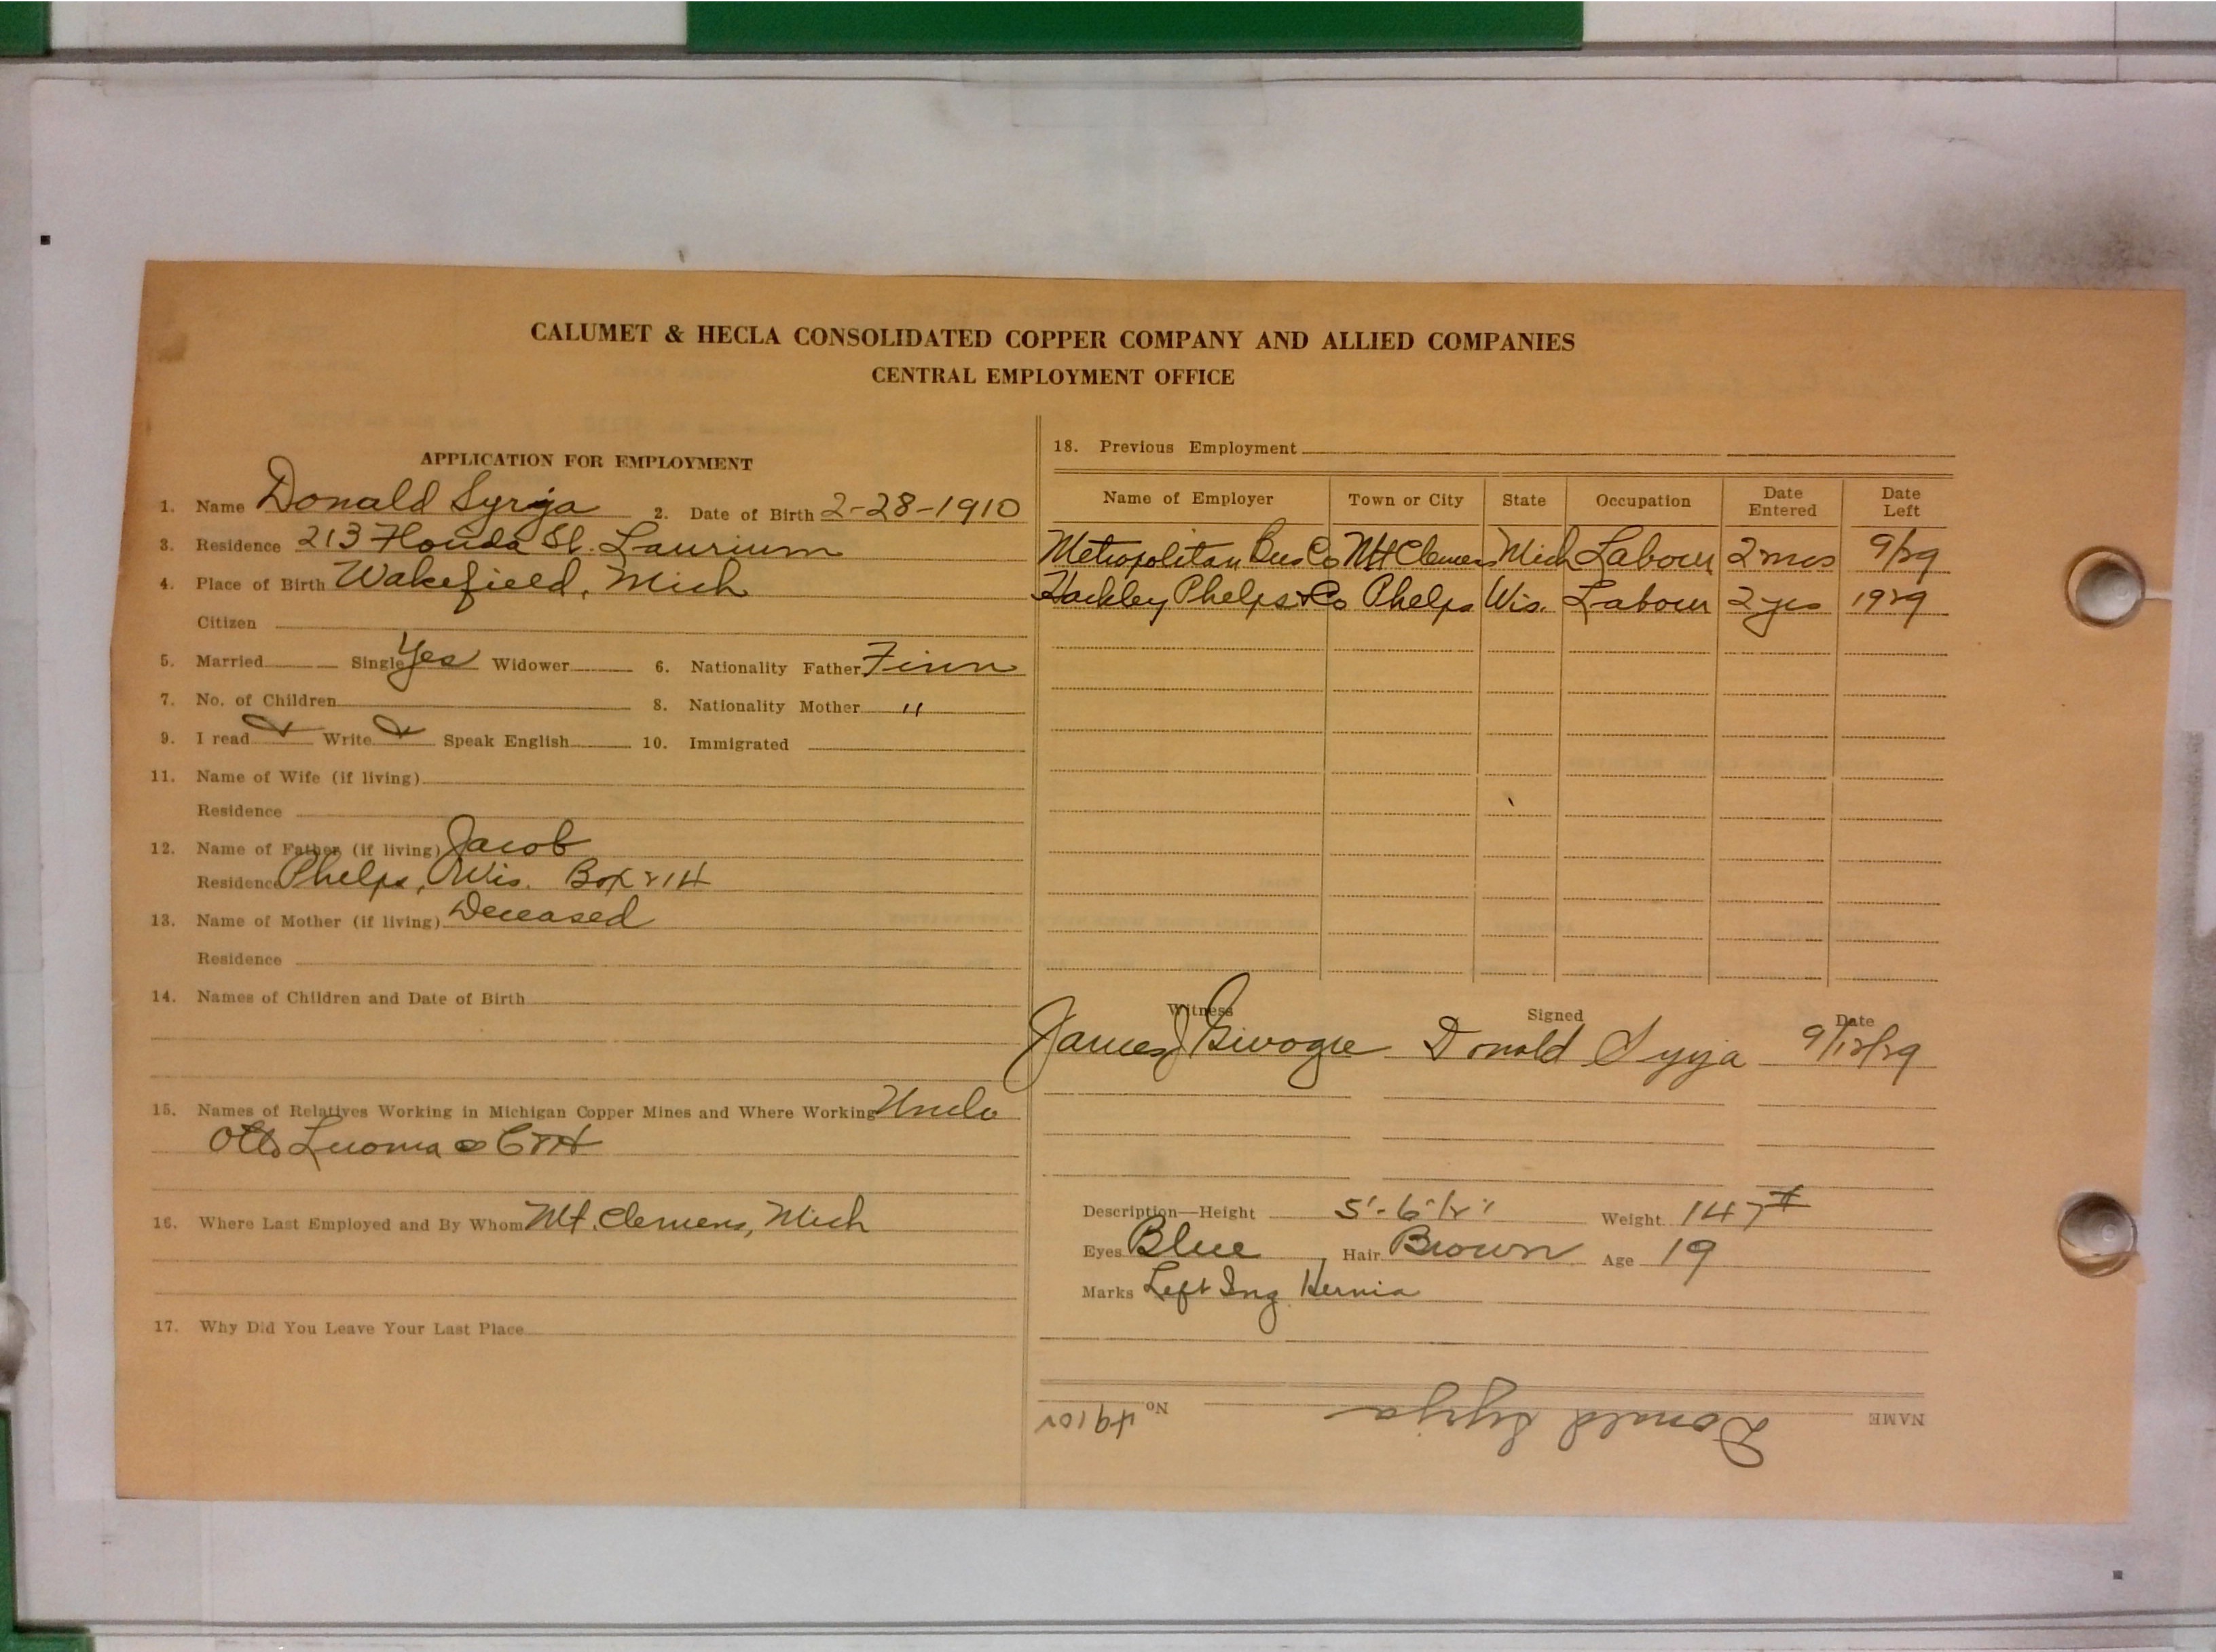 CALUMET & HECLA CONSOLIDATED COPPER COMPANY AND ALLIED COMPANIES
CENTRAL EMPLOYMENT OFFICE
APPLICATION FOR EMPLOYMENT
1. Name Donald Syrja 2. Date of Birth 2-28-1910
3. Residence 213 Florida St. Laurium
4. Place of Birth Wakefield, Mich
Citizen
5. Married Single Yes Widower 6. Nationality Father Finn
7. No. of Children 8. Nationality Mother "
9. I read Write Speak English 10. Immigrated
11. Name of Wife (if living)
Residence
12. Name of Father (if living) Jacob
Residence Phelps, Wis. Box 214
13. Name of Mother (if living) Deceased
Residence
14. Names of Children and Date of Birth
15. Names of Relatives Working in Michigan Copper Mines and Where Working Uncle
Otto Luoma C&H
16. Where Last Employed and By Whom Mt. Clemens, Mich
17. Why Did You Leave Your Last Place
18. Previous Employment
Name of Employer Town or City State Occupation Date Entered Date Left
Metropolitan Bus Co Mt Clemens Mich Labour 2 mos 9/29
Hackley Phelps & Co Phelps Wis. Labour 2 yrs 1929
Witness Signed Date
James J Donald Syrja 9/12/29
Description—Height 5'-6 1/2" Weight 147#
Eyes Blue Hair Brown Age 19
Marks Left Ing. Hernia
NAME Donald Syrja No. 49102